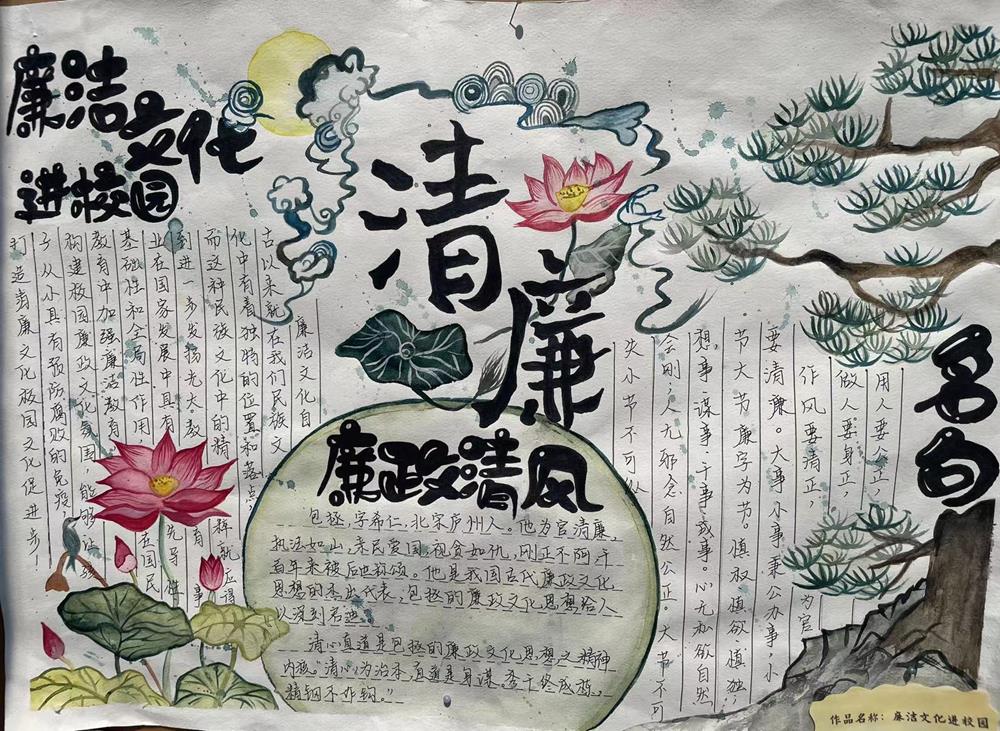 廉洁文化
进校园
清廉
名句
廉洁文化自
古以来就在我们民族文
化中有着独特的位置和落点,
而这种民族文化中的精粹就应得
到进一步发扬光大。教育事
业在国家发展中具有先导性
基础性和全局性作用在国民
教育中加强廉洁教育,
构建校园廉政文化氛围,能够让孩
子从小具有预防腐败的免疫,
打造清廉文化校园文化促进步!
廉政清风
包拯,字希仁,北宋庐州人。他为官清廉
执法如山,亲民爱国,视贪如仇,刚正不阿千
百年来被后世称颂。他是我国古代廉政文化
思想的杰出代表,包拯的廉政文化思想给人
以深刻启迪。
清心直道是包拯的廉政文化思想之精神
内核"清心为治本,直道是身谋。秀干终成栋,
精钢不作钩。"
用人要公正,
做人要身正,
作风要清正,为官
要清廉。大事小事秉公办事,小
节大节廉字为节。慎权慎欲慎独,
想事谋事干事成事心无私欲自然
会刚,人无邪念自然公正。大节不可
失小节不可
作品名称:廉洁文化进校园